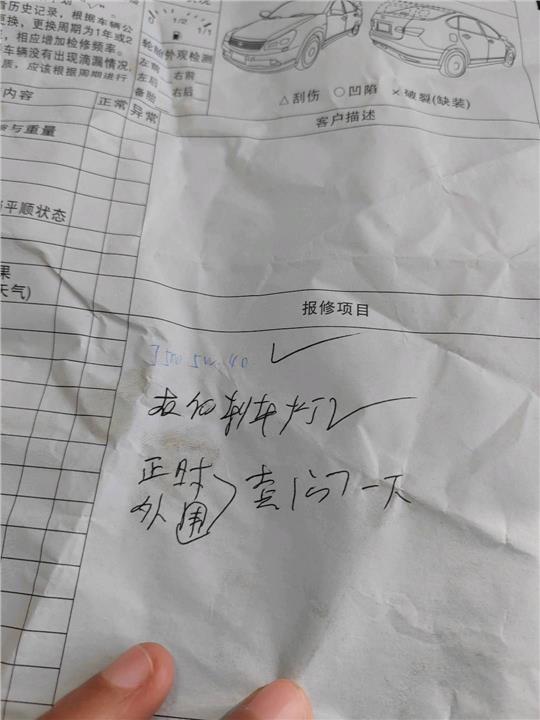 历史记录，根据车辆公
更换，更换周期为1年或2
，相应增加检修频率。
车辆没有出现滴漏情况，
质，应该根据周期进行
内容
正常
异常
与重量
平顺状态
果
天气)
1/2
1/1
轮胎外观检测
左前
右前
左后
右后
备胎
△刮伤 ○凹陷 ×破裂(缺装)
客户描述
报修项目
5W-40
刹车灯
正时
外围
查 一下